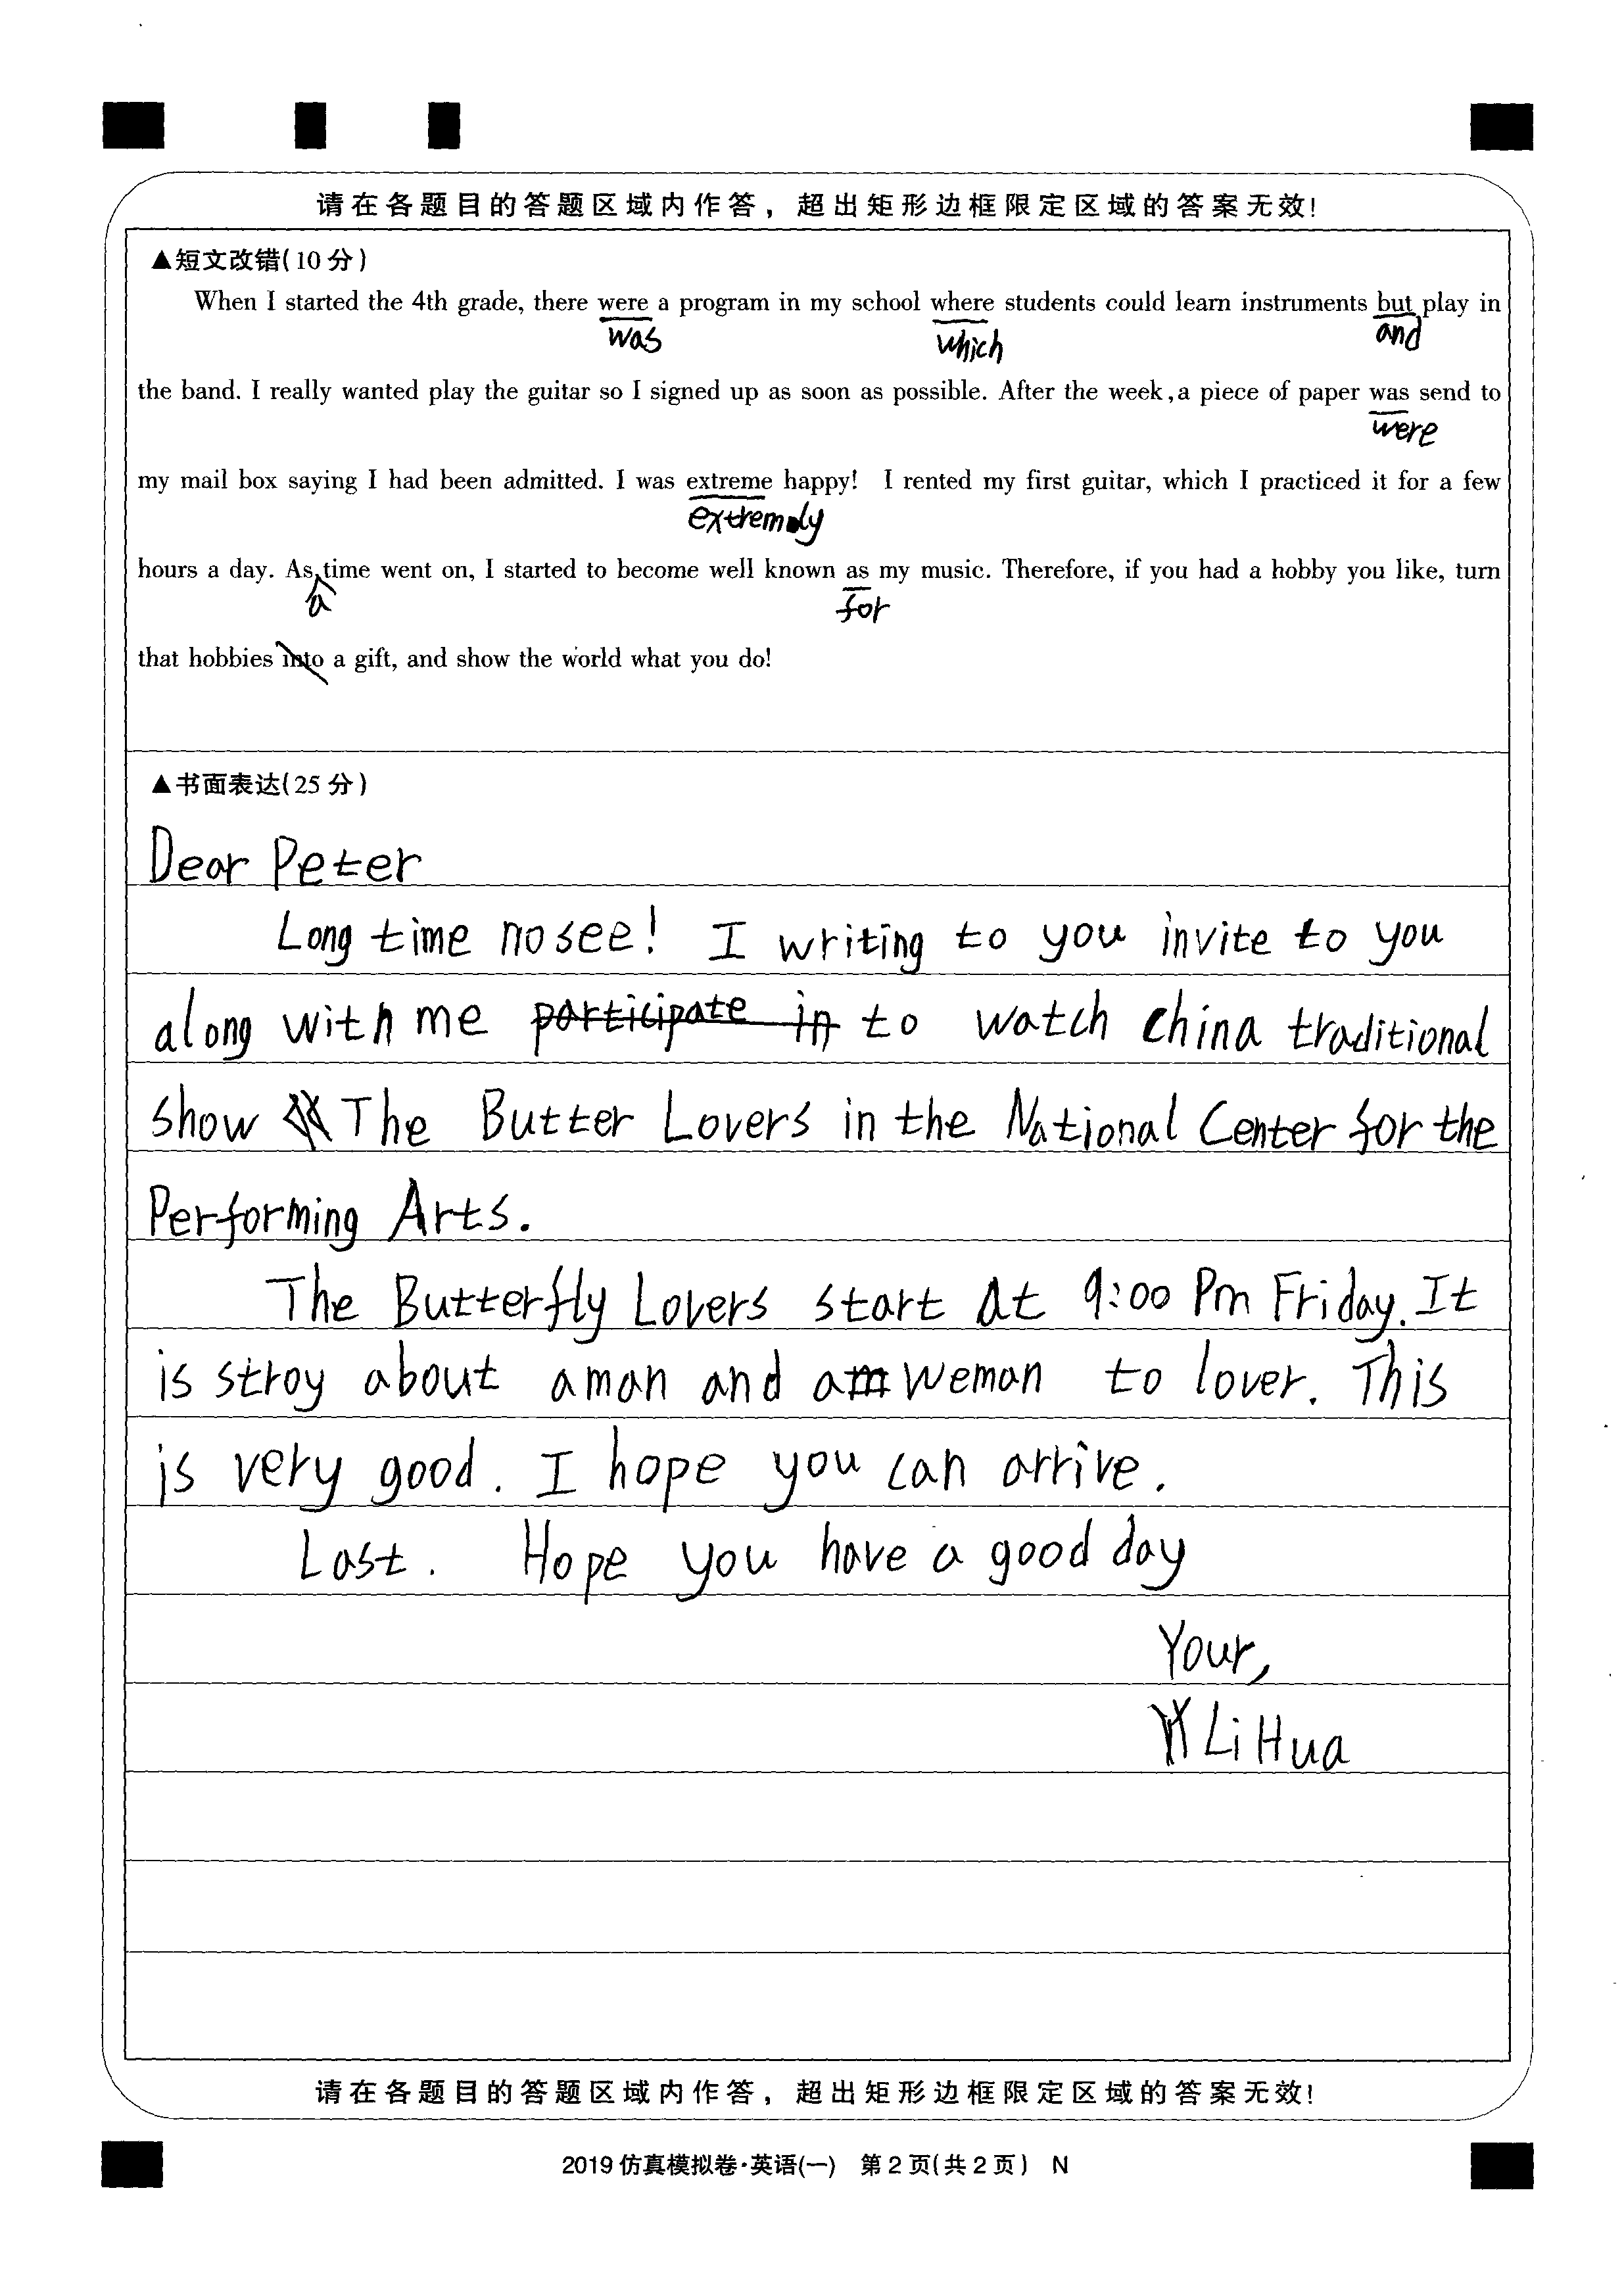 请在各题目的答题区域内作答，超出矩形边框限定区域的答案无效!
▲短文改错(10分)
When I started the 4th grade, there were a program in my school where students could learn instruments but play in
was which and
the band. I really wanted play the guitar so I signed up as soon as possible. After the week, a piece of paper was send to
were
my mail box saying I had been admitted. I was extreme happy! I rented my first guitar, which I practiced it for a few
extremly
hours a day. As time went on, I started to become well known as my music. Therefore, if you had a hobby you like, turn
a for
that hobbies into a gift, and show the world what you do!
▲书面表达(25分)
Dear Peter
Long time no see! I writing to you invite to you
along with me participate in to watch china traditional
show The Butter Lovers in the National Center for the
Performing Arts.
The Butterfly Lovers start at 9:00 Pm Friday. It
is stroy about a man and a weman to lover. This
is very good. I hope you can arrive.
Last. Hope you have a good day
Your,
Li Hua
请在各题目的答题区域内作答，超出矩形边框限定区域的答案无效!
2019仿真模拟卷·英语(一) 第2页(共2页) N